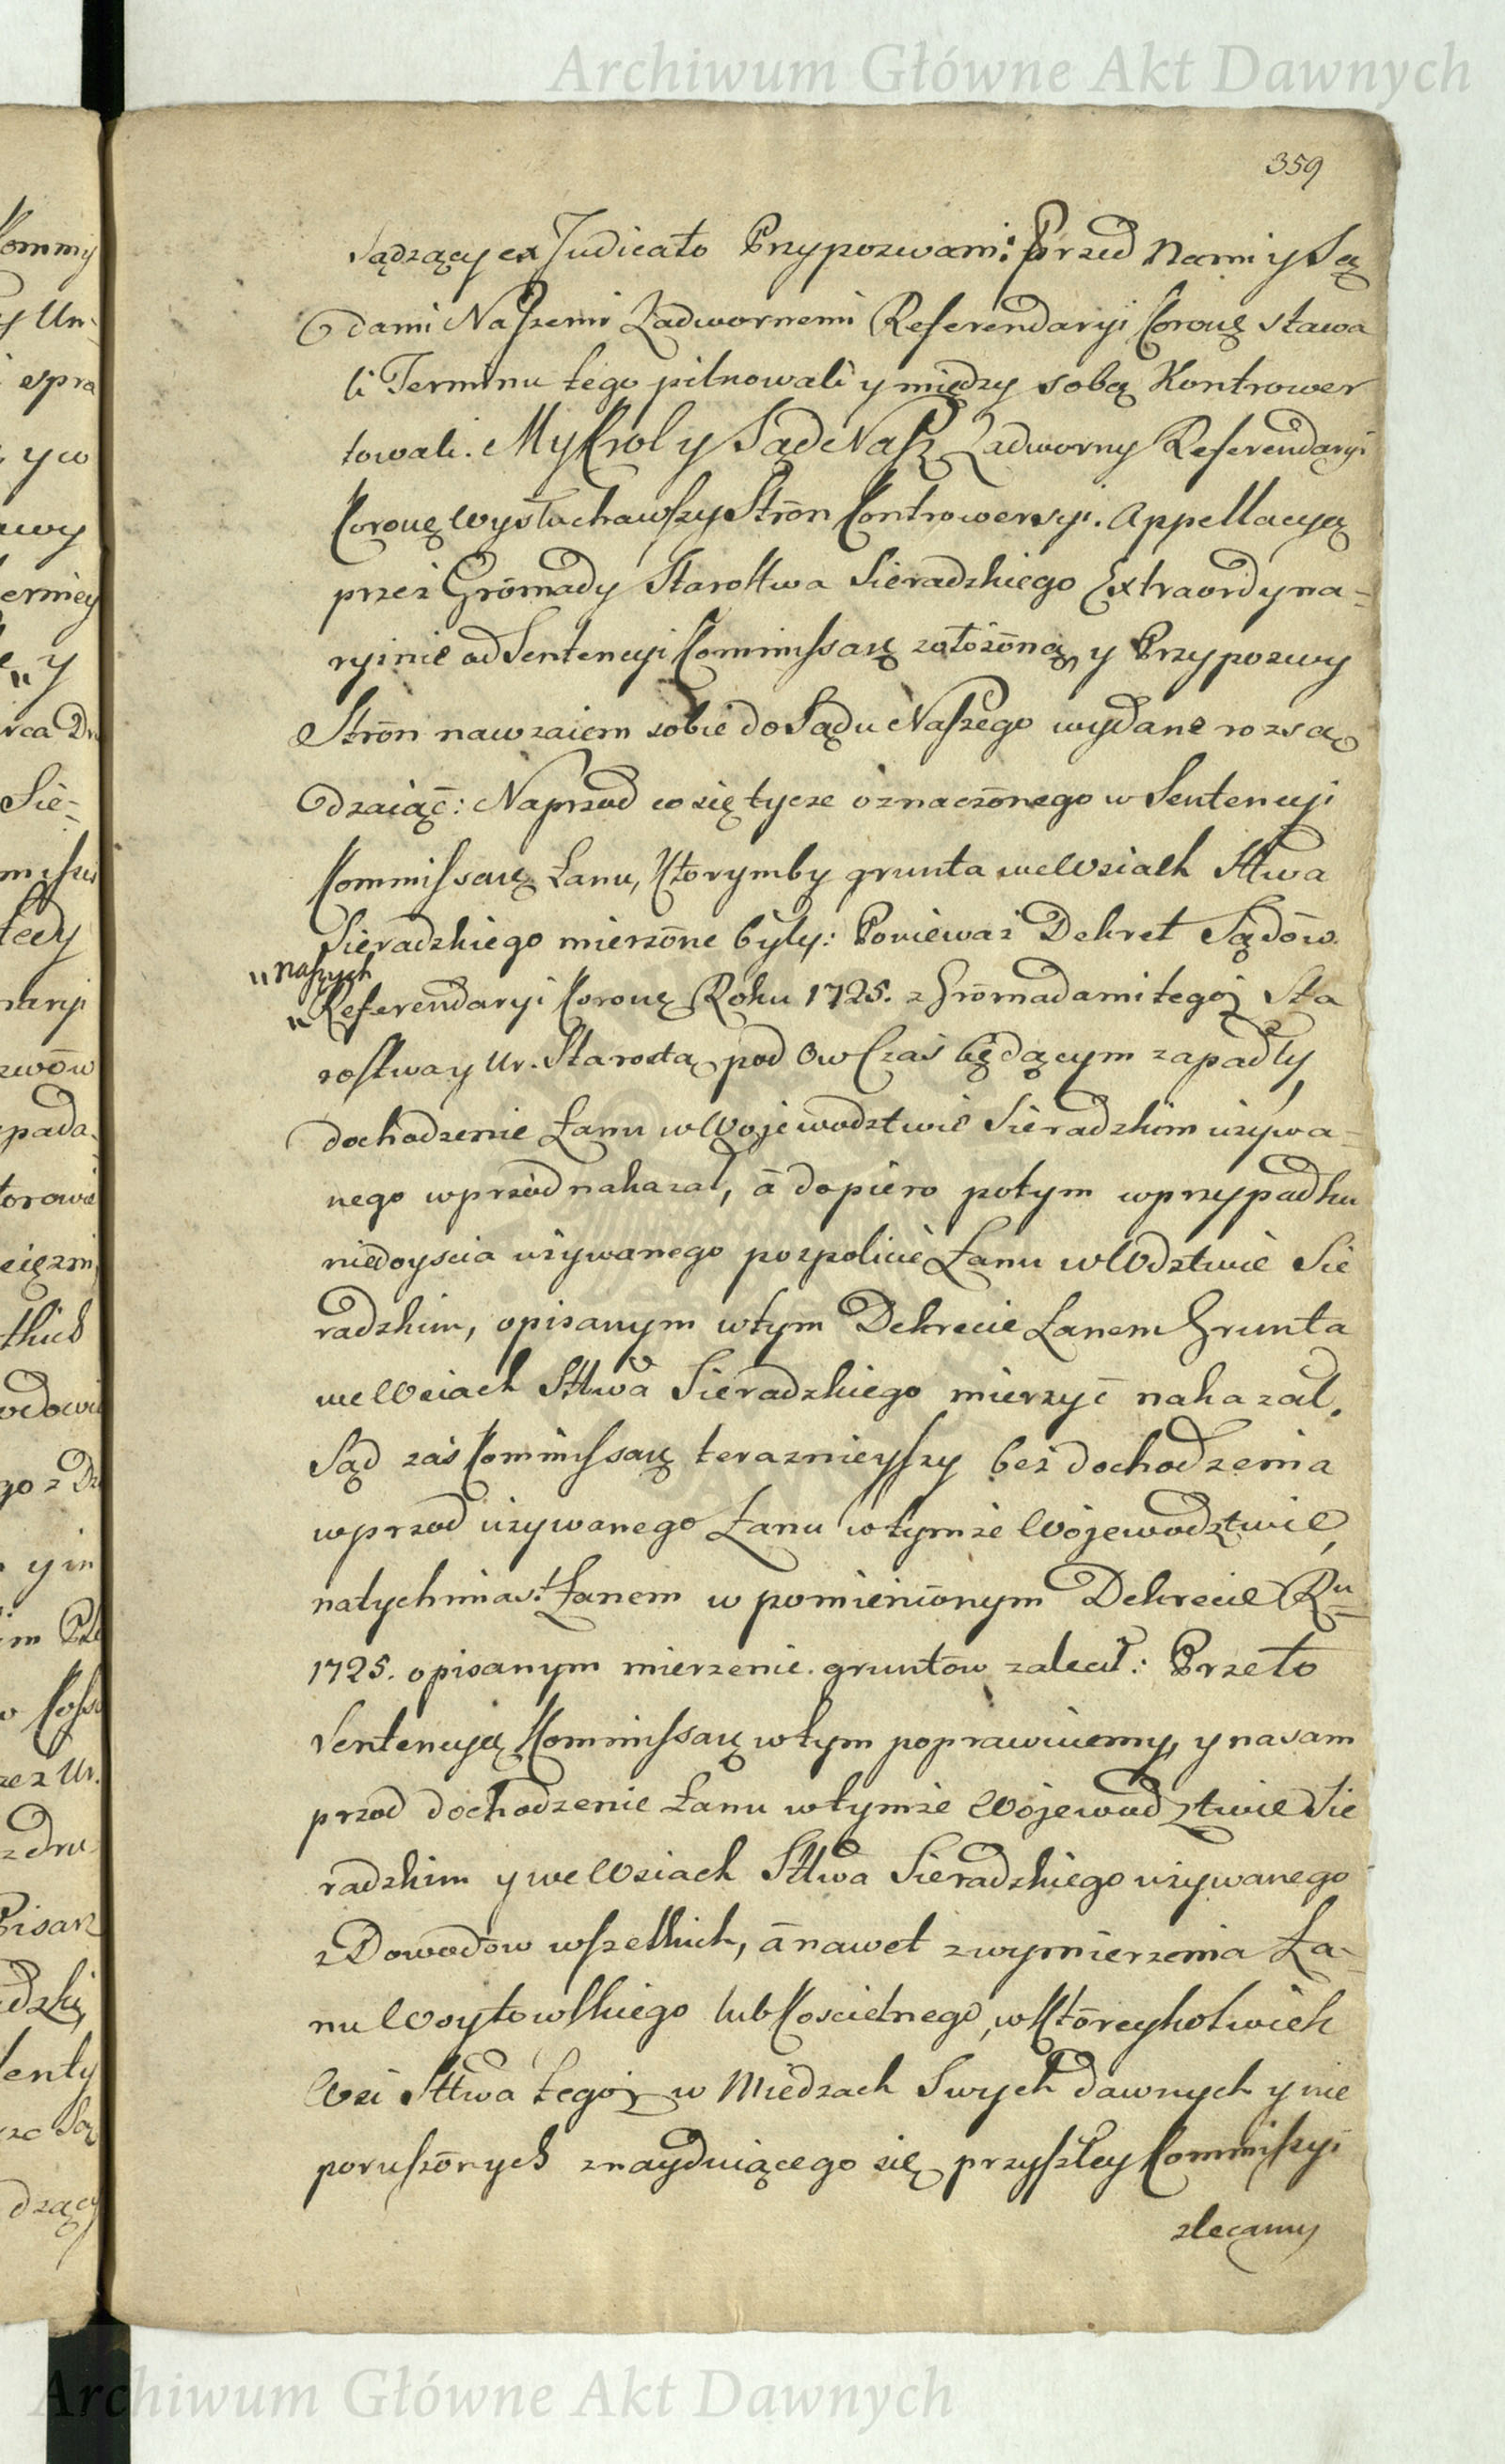 Archiwum Główne Akt Dawnych
359
Sądzący ex Judicato Przypozwami: Przed Nami y Są
dami Naszemi Zadwornemi Referendaryi Koroñę stawa
li Terminu tego pilnowali y między sobą Kontrower
towali. My Krol y Sąd Nasz Zadworny Referendaryi
Koroñę wysłuchawszy Strón Kontrowersyi. Appellacyą
przez Grómady Starostwa Sieradzkiego Extraordyna=
ryinie od Sentencyi Kommissarę założóną, y Przypozwy
Strón nawzaiem sobie do Sądu Naszego wydane rozsą
dzaiąć: Naprzod co się tycze óznaczónego w Sentencyi
Kommissarę Łanu, Ktorymby grunta we Wsiach Sttwa
Sieradzkiego mierzóne były: Poniewaz Dekret Sądów
"naszych
"Referendaryi Koronę Roku 1725. z Grómadami tegoż Sta
rostwa y Ur. Starostą pod ow Czas będącym zapadły,
dochodzenie Łanu w Wojewodztwie Sieradzkim używa=
nego wprzód nakazał, á dopiero potym w przypadku
niedoyscia używanego pospolicie Łanu w Wdztwie Sie
radzkim, opisanym w tym Dekrecie Łanem Grunta
we Wsiach Sttwa Sieradzkiego mierzyć nakazał.
Sąd zaś Kommissarę teraznieyszy bez dochodzenia
wprzod uzywanego Łanu w tymze Wojewodztwie,
natychmiast Łanem w pomieniónym Dekrecie Ru
1725. opisanym mierzenie gruntów zalecił: Przeto
Sentencyą Kommissarę w tym poprawuiemy, y na sam
przod dochodzenie Łanu w tymze Wojewodztwie Sie
radzkim y we Wsiach Sttwa Sieradzkiego uzywanego
z Dowodów wszelkich, á nawet z wymierzenia Ła=
nu Woytowskiego lub Koscielnego, w Któreykolwiek
Wsi Sttwa tegoż w Miedzach Swych dawnych y nie
poruszónych znayduiącego się przyszłey Kommissyi
zlecamy
Archiwum Główne Akt Dawnych